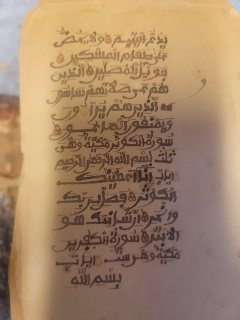 يدع اليتيم ولا يحض
على طعام المسكين
فويل للمصلين الذين
هم عن صلاتهم ساهو
ن الذين هم يراءون
ويمنعون الماعون
سورة الكوثر مكية وهي
ثلث بسم الله الرحمن الرحيم
إنا أعطينك
الكوثر فصل لربك
وانحر إن شانئك هو
الأبتر سورة الكفرين
مكية وهي ست ءايات
بسم الله